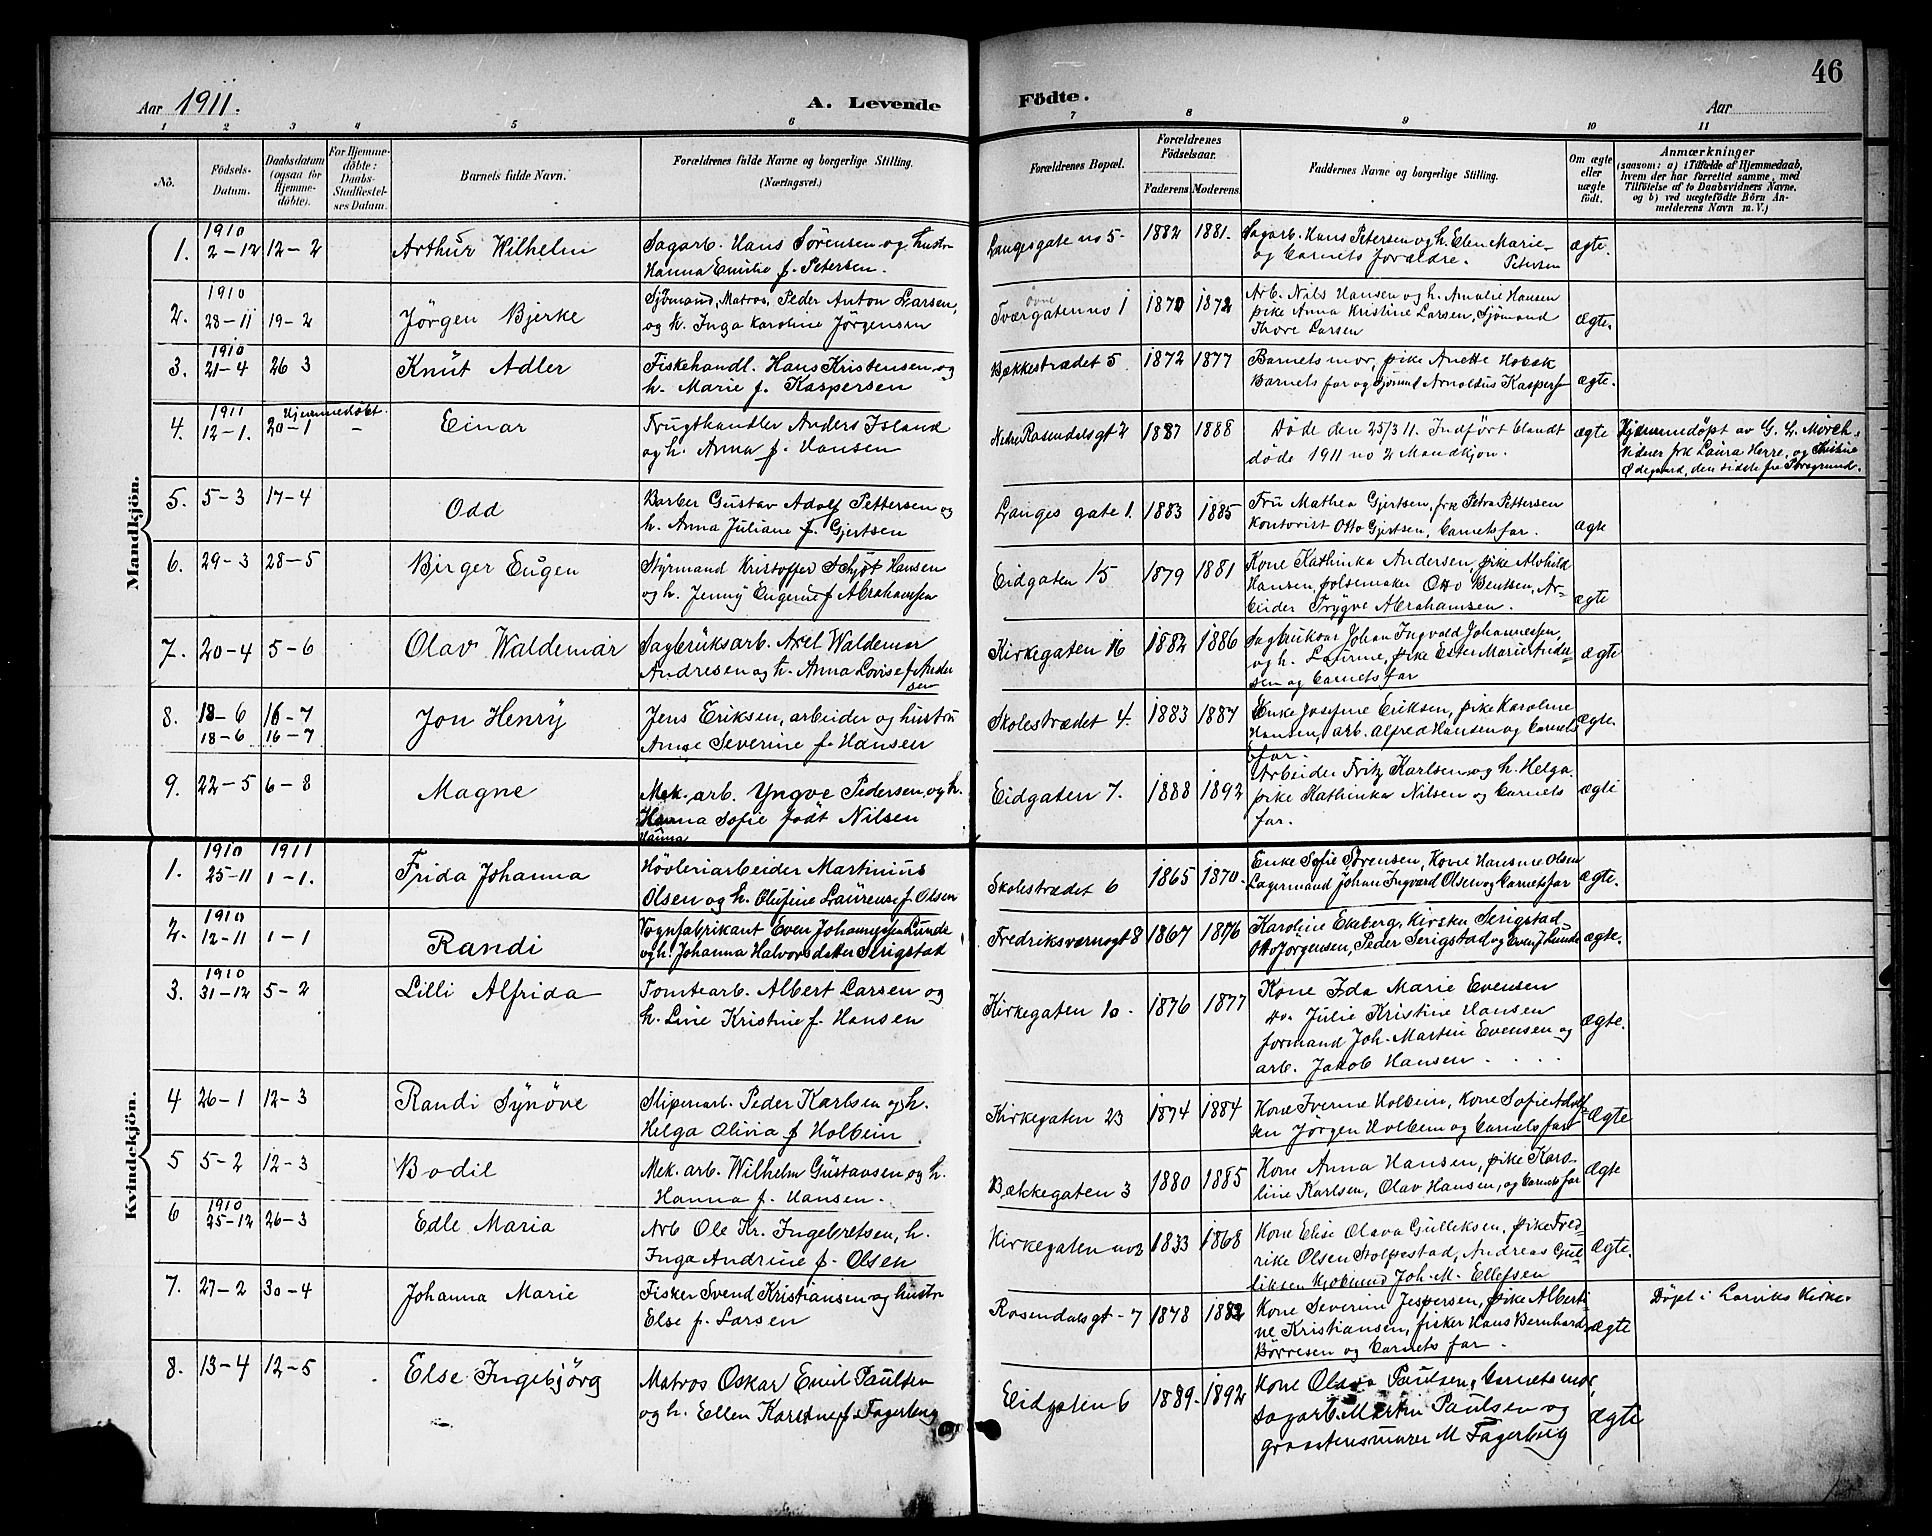 46
Aar 1911.
A. Levende Födte.
Aar
1 2 3 4 5 6 7 8 9 10 11
No.
Födsels-Datum.
Daabsdatum (ogsaa for Hjemme-döbte).
For Hjemme-döbte: Daabs-Stadfæstel-ses Datum.
Barnets fulde Navn.
Forældrenes fulde Navne og borgerlige Stilling. (Næringsvei.)
Forældrenes Bopæl.
Forældrenes Födselsaar.
Faderens Moderens.
Faddernes Navne og borgerlige Stilling.
Om ægte eller uægte født.
Anmærkninger
(saasom: a) i Tilfælde af Hjemmedaab,
hvem der har forrettet samme, med
Tilföielse af to Daabsvidners Navne,
og b) ved uægtefödte Börn An-
melderens Navn m. V.)
Mandkjön.
1. 1910 2-12 12-2 Arthur Wilhelm
Sagarb. Hans Sørensen og hustru
Hanna Emilie f. Petersen.
Langesgate no 5- 1882 1881.
Sagarb. Hans Petersen og h. Elen Marie
Petersen
og barnets forældre.
ægte.
2. 1910 28-11 19-2 Jörgen Bjerke
Sjömand, Matros, Peder Anton Larsen,
og h. Inga Karoline Jörgensen
övre
Tværgaten no 1 1870 1872
Arb. Nils Hansen og h. Amalie Hansen
pike Anna Kristine Larsen, Sjömand
Thore Larsen
ægte.
3. 1910 21-4 26 3 Knut Adler
Fiskehandl. Hans Kristensen og
h. Marie f. Kaspersen
Bækkestrædet 5. 1872 1877
Barnets mor, pike Anette Hobæk
Barnets far og Sjömd Arnoldus Kaspers
ægte.
4. 1911 12-1. Hjemmedöbt. 20-1 - Einar
Frugthandler Anders Island
og h. Anna f. Hansen
Nedre Rosendalsgt 2 1887 1888
Døde den 25/3 11. Indfört blandt
døde 1911 no 2 Mandkjøn.
ægte
Hjemmedøpt av G. L. Mørch.
Vidner frk Laura Herre, og Kristine
Ødegaard, den sidste fra Porsgrund.
5. 5-3 17-4 Odd
Barber Gustav Adolf Pettersen og
h. Anna Juliane f. Gjertsen
Langes gate 1. 1883 1885
Fru Mathea Gjertsen, frk Petra Pettersen
Kontorist Otto Gjertsen, barnets far.
ægte
6. 29-3 28-5 Birger Eugen
Styrmand Kristoffer Schjöt Hansen
og h. Jenny Eugenie f Abrahamsen
Eidgaten 15 1879 1881
Kone Kathinka Andersen, pike Alvhild
Hansen, pølsemaker Otto Bentsen, Ar-
beider Trygve Abrahamsen.
ægte
7. 20-4 5-6 Olav Waldemar
Sagbruksarb. Axel Waldemar
Andresen og h. Anna Lovise f Ander
sen
Kirkegaten 16 1882 1886
Sagbruksar Johan Ingvald Johannessen,
og h. Laurine, pike Ester Marie Ander
sen og barnets far
ægte
8. 18-6 16-7 Jon Henry
18-6 16-7
Jens Eriksen, arbeider og hustru
Anne Severine f. Hansen
Skolestrædet 4. 1883 1887
Enke Josefine Eriksen, pike Karoline
Hansen, arb. Alfred Hansen og barnets
far.
ægte.
9. 22-5 6-8 Magne
Mek. arb. Yngve Pedersen og h.
Hanna Sofie født Nilsen
Hanna
Eidgaten 7. 1888 1892
Arbeider Fritz Karlsen og h. Helga
pike Kathinka Nilsen og barnets
far.
ægte
Kvindekjön.
1. 1910 25-11 1911 1-1. Frida Johanna
Høvleriarbeider Martinius
Olsen og h. Olufine Laurense f. Olsen
Skolestrædet 6 1865 1870.
Enke Sofie Sørensen, Kone Hansine Olsen
Lagermand Johan Ingvard Olsen og barnets far
ægte.
2. 1910 12-11 1-1 Randi
Vognfabrikant Even Johannessen Lunde
og h. Johanna Halvorsdatter Serigstad
Fredriksværnsgt 8 1867 1876
Karoline Ekeberg, Kirsten Serigstad
Otto Jörgensen, Peder Serigstad og Even J Lunde
ægte.
3. 1910 31-12 5-2 Lilli Alfrida
Tomtearb. Albert Larsen og
h. Line Kristine f. Hansen
Kirkegaten 10. 1876 1877
Kone Ida Marie Evensen
do. Julie Kristine Hansen
formand Joh. Martin Evensen og
arb. Jakob Hansen . . . .
ægte.
4 26-1 12-3 Randi Synöve
Sliperiarb. Peder Karlsen og h.
Helga Olivia f Holbein
Kirkegaten 23 1874 1884
Kone Iverine Holbein, Kone Sofie Adolf
sen Jörgen Holbein og barnets far
Ægte
5 5-2 12-3 Bodil
Mek. arb. Wilhelm Gustavsen og h.
Hanna f. Hansen.
Bækkegaten 3 1880 1885
Kone Anna Hansen, pike Karo-
line Karlsen, Olav Hansen, og barnets far
Ægte
6 1910 25-12 26-3 Edle Maria
Arb Ole Kr. Ingebretsen, h.
Inga Andrine f. Olsen
Kirkegaten 1833 1868
Kone Elise Olava Gulleksen, pike Fred
rike Olsen Stolpestad, Andreas Gul
liksen Joh. M. Ellefsen
Ægte.
7. 27-2 30-4 Johanna Marie
Fisker Svend Kristiansen og hustru
Else f. Larsen
Rosendalsgt - 7 1878 1882
Kone Severine Jespersen, pike Alberti
ne Kristiansen, fisker Hans Bernhard
Börresen og barnets far.
Ægte
Døpt i Larviks Kirke.
8. 13-4 12-5 Else Ingebjörg
Matros Oskar Emil Paulsen
og h. Ellen Karstine f. Fagerberg
Eidgaten 6 1889. 1892
Kone Olava Paulsen, barnets mor,
sagarb. Martin Paulsen og
graastensmurer M Fagerberg
Ægte